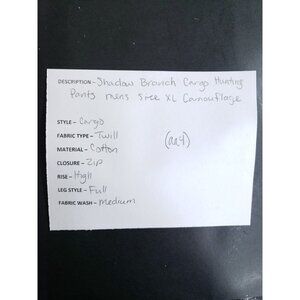 DESCRIPTION - Shadow Branch Cargo Hunting
Pants mens Size XL Camouflage
STYLE - Cargo
FABRIC TYPE - Twill
MATERIAL - Cotton
(aa4)
CLOSURE - Zip
RISE - High
LEG STYLE - Full
FABRIC WASH - medium